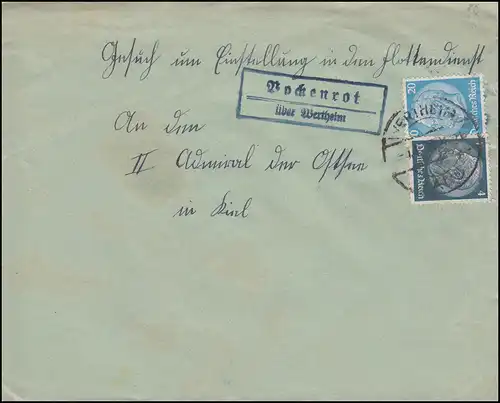 Gesuch um Einstellung in den Flottendienst
Vockenrot
über Wertheim
An den
II Admiral der Ostsee
in Kiel
20
Deutsches Reich
WERTHEIM
Deutsches Reich
4